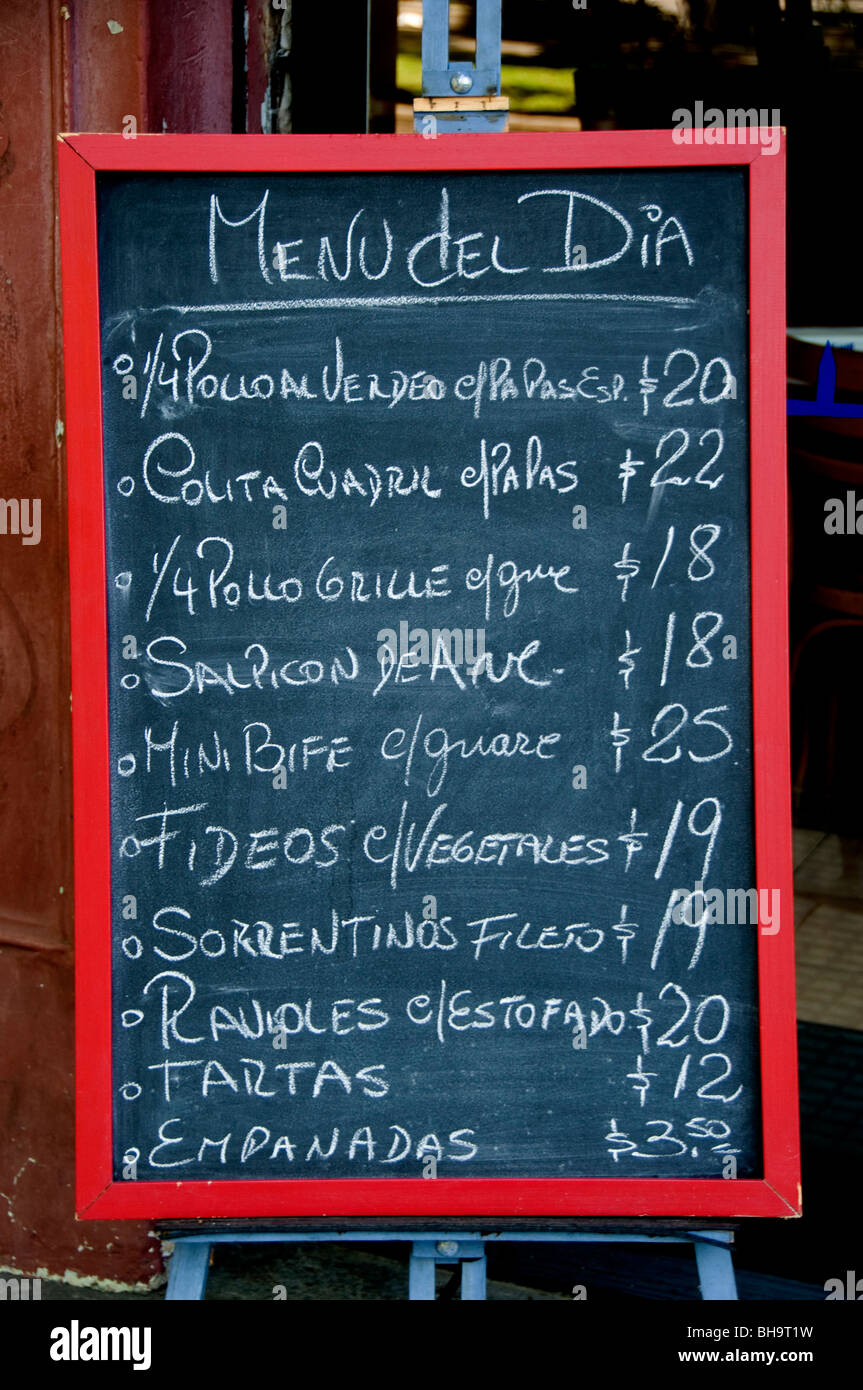 MENU del DIA
o 1/4 POLLO AL VERDEO c/PAPAS ESP. $20
o COLITA CUADRIL c/PAPAS $22
o 1/4 POLLO GRILLE c/gua $18
o SALPICON DE AVE - $18
o MINI BIFE c/guarc $25
o FIDEOS c/VEGETALES $19
o SORRENTINOS FILETO $19
o RAVIOLES c/ESTOFADO $20
o TARTAS $12
o EMPANADAS $3.50
alamy
Image ID: BH9T1W
www.alamy.com